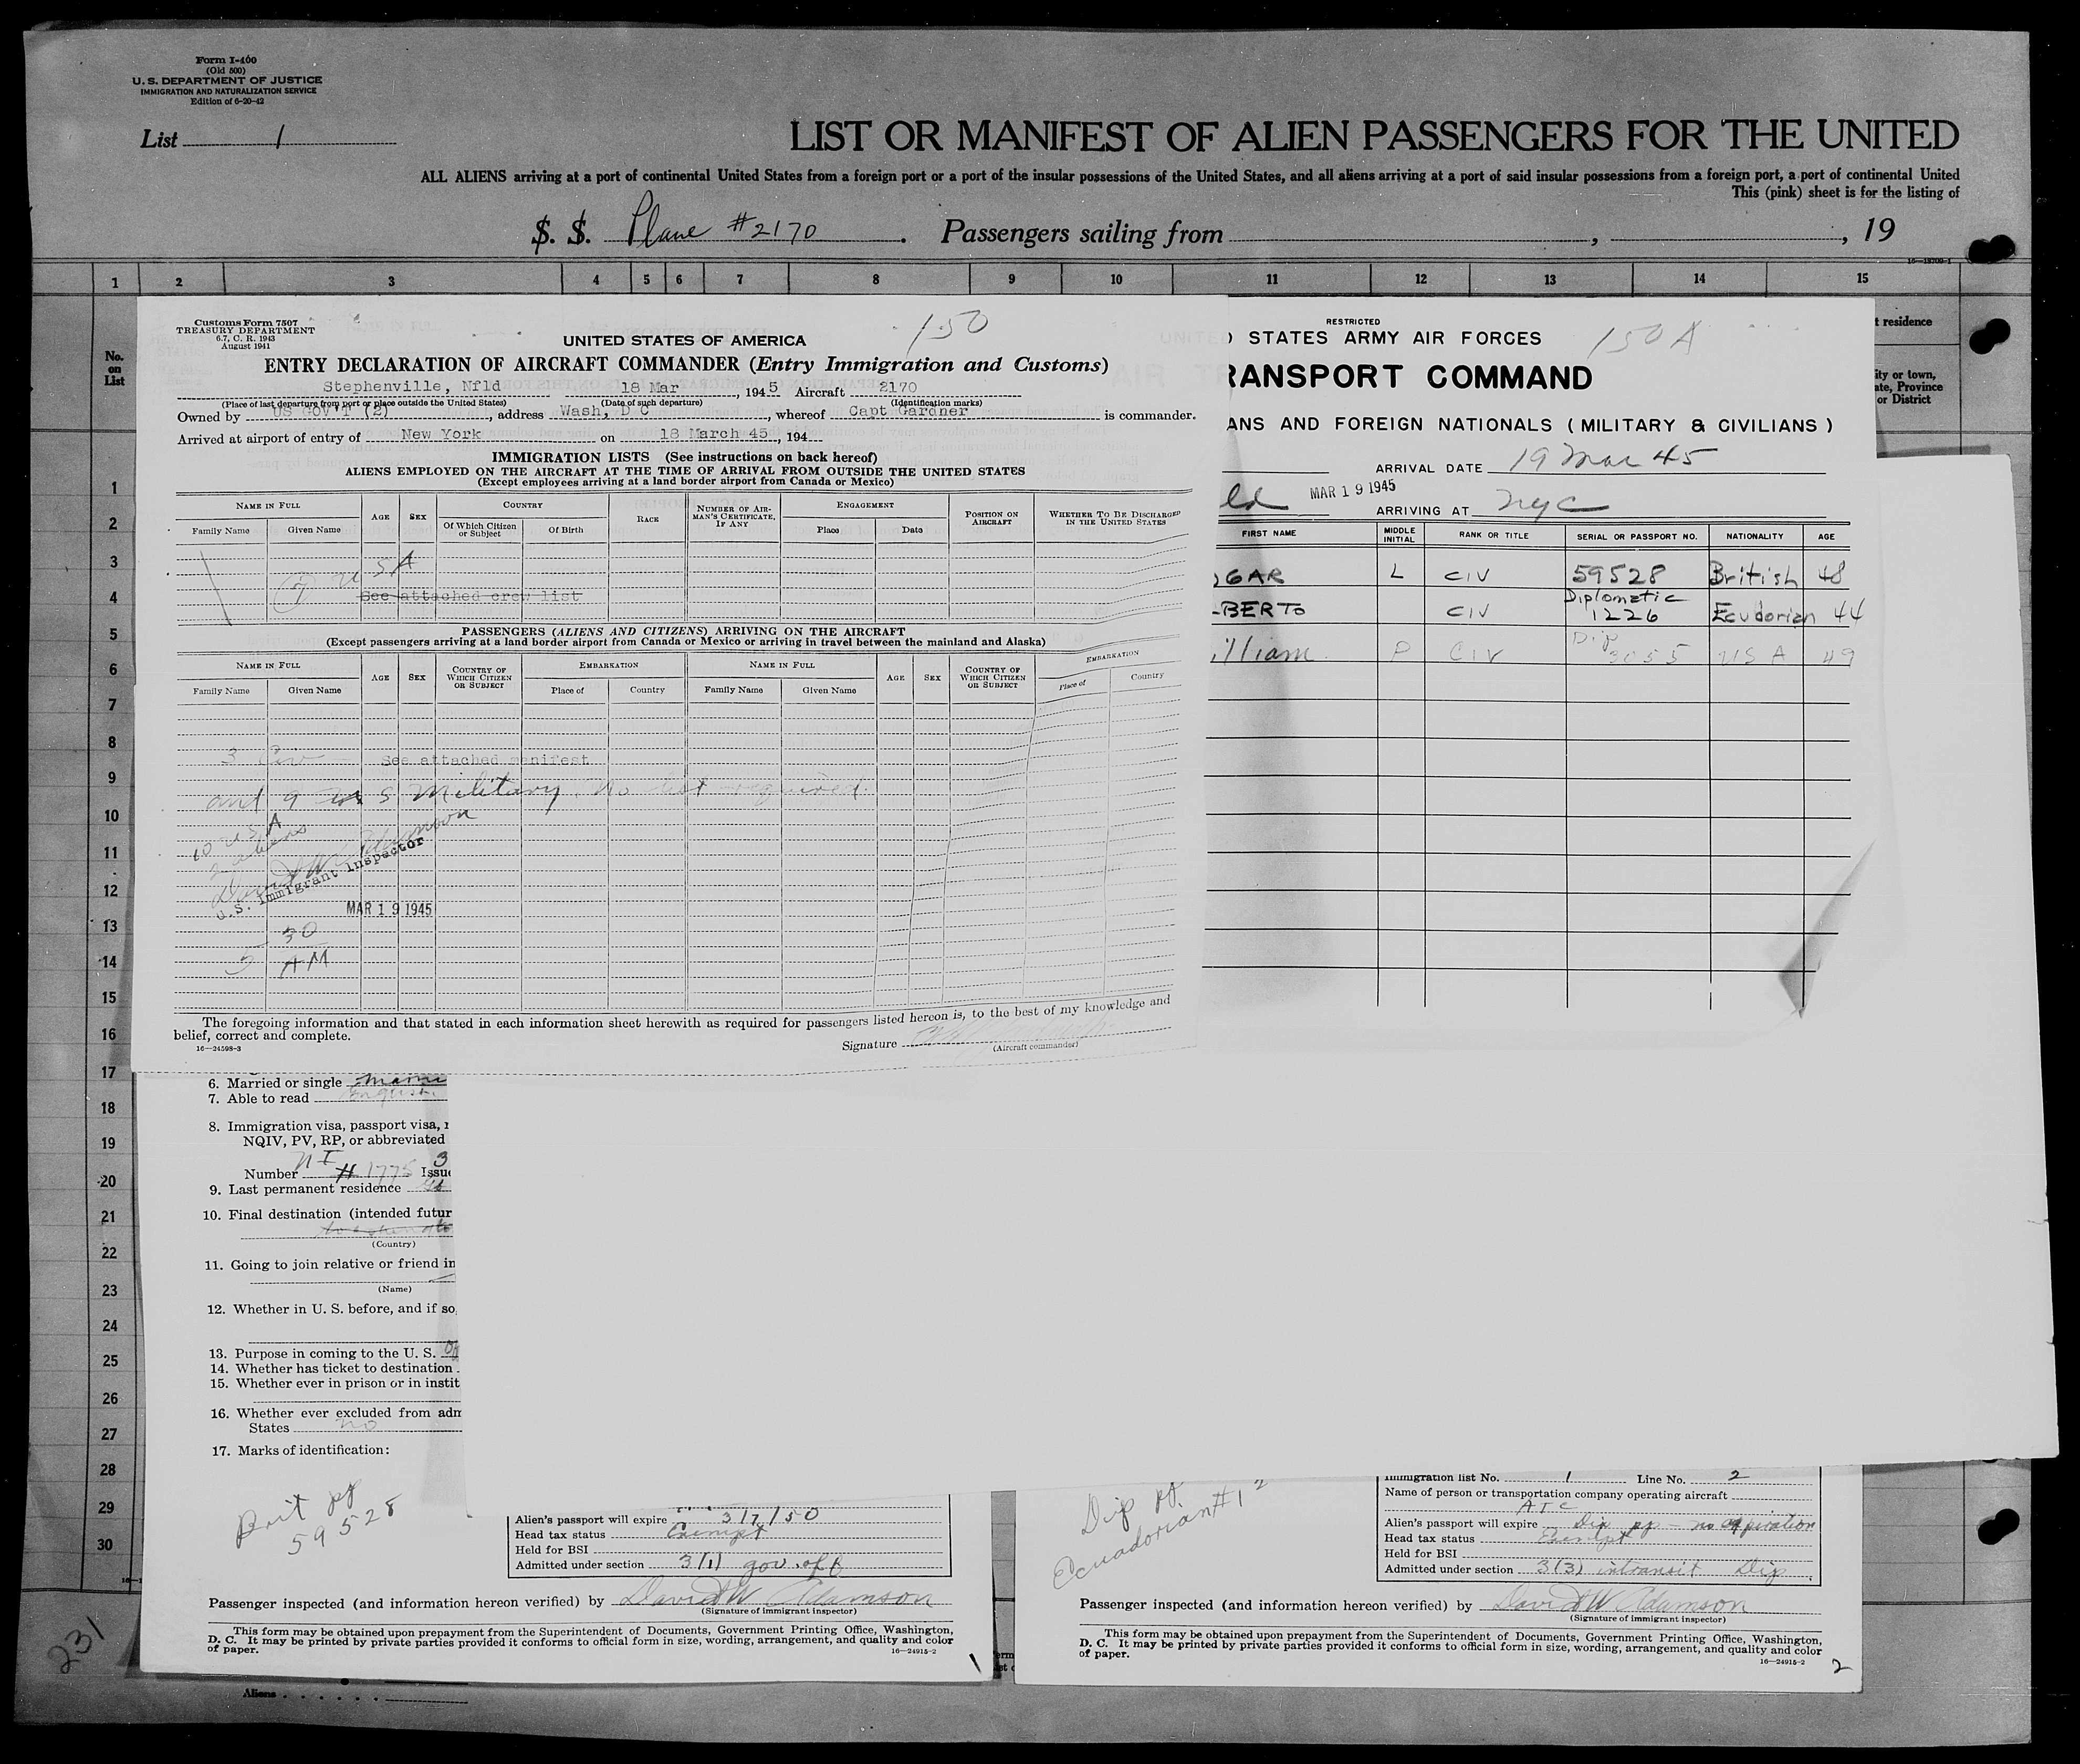 Form I-460
(Old 500)
U. S. DEPARTMENT OF JUSTICE
IMMIGRATION AND NATURALIZATION SERVICE
Edition of 6-20-42
List 1
LIST OR MANIFEST OF ALIEN PASSENGERS FOR THE UNITED
ALL ALIENS arriving at a port of continental United States from a foreign port or a port of the insular possessions of the United States, and all aliens arriving at a port of said insular possessions from a foreign port, a port of continental United
This (pink) sheet is for the listing of
S. S. Plane #2170. Passengers sailing from , , 19
1 2 3 4 5 6 7 8 9 10 11 12 13 14 15
No. on List
t residence
ity or town,
ate, Province
or District
1
2
3
4
5
6
7
8
9
10
11
12
13
14
15
16
17
18
19
20
21
22
23
24
25
26
27
28
29
30
Customs Form 7507
TREASURY DEPARTMENT
6.7, C. R. 1943
August 1941
150
UNITED STATES OF AMERICA
ENTRY DECLARATION OF AIRCRAFT COMMANDER (Entry Immigration and Customs)
Stephenville, Nfld 18 Mar, 1945 Aircraft 2170
(Place of last departure from port or place outside the United States) (Date of such departure) (Identification marks)
Owned by US GOV'T (2), address Wash, D C, whereof Capt Gardner is commander.
Arrived at airport of entry of New York on 18 March 45, 194
IMMIGRATION LISTS (See instructions on back hereof)
ALIENS EMPLOYED ON THE AIRCRAFT AT THE TIME OF ARRIVAL FROM OUTSIDE THE UNITED STATES
(Except employees arriving at a land border airport from Canada or Mexico)
NAME IN FULL AGE SEX COUNTRY RACE NUMBER OF AIRMAN'S CERTIFICATE, IF ANY ENGAGEMENT POSITION ON AIRCRAFT WHETHER TO BE DISCHARGED IN THE UNITED STATES
Family Name Given Name Of Which Citizen or Subject Of Birth Place Date
7 USA
See attached crew list
PASSENGERS (ALIENS AND CITIZENS) ARRIVING ON THE AIRCRAFT
(Except passengers arriving at a land border airport from Canada or Mexico or arriving in travel between the mainland and Alaska)
NAME IN FULL AGE SEX COUNTRY OF WHICH CITIZEN OR SUBJECT EMBARKATION NAME IN FULL AGE SEX COUNTRY OF WHICH CITIZEN OR SUBJECT EMBARKATION
Family Name Given Name Place of Country Family Name Given Name Place of Country
3 Civ See attached manifest
and 9 U S Military. No list required.
10 USA
2 aliens
David W Adamson
U.S. Immigrant Inspector
MAR 19 1945
5 30
AM
The foregoing information and that stated in each information sheet herewith as required for passengers listed hereon is, to the best of my knowledge and
belief, correct and complete.
16—24598-3
Signature
(Aircraft commander)
RESTRICTED
150 A
D STATES ARMY AIR FORCES
RANSPORT COMMAND
ANS AND FOREIGN NATIONALS (MILITARY & CIVILIANS)
ARRIVAL DATE 19 Mar 45
ld MAR 19 1945
ARRIVING AT NYC
FIRST NAME MIDDLE INITIAL RANK OR TITLE SERIAL OR PASSPORT NO. NATIONALITY AGE
GAR L CIV 59528 British 48
BERTO CIV Diplomatic 1226 Ecudorian 44
illiam P CIV Dip 3055 USA 49
6. Married or single
7. Able to read English
8. Immigration visa, passport visa,
NQIV, PV, RP, or abbreviated
Number NI # 1775 Issue
9. Last permanent residence
10. Final destination (intended futur
(Country)
11. Going to join relative or friend in
(Name)
12. Whether in U. S. before, and if so,
13. Purpose in coming to the U. S.
14. Whether has ticket to destination
15. Whether ever in prison or in instit
16. Whether ever excluded from adm
States no
17. Marks of identification:
Brit pp
59528
Alien's passport will expire 3/7/50
Head tax status Exempt
Held for BSI
Admitted under section 3(1) gov. off
Passenger inspected (and information hereon verified) by David W Adamson
(Signature of immigrant inspector)
This form may be obtained upon prepayment from the Superintendent of Documents, Government Printing Office, Washington,
D. C. It may be printed by private parties provided it conforms to official form in size, wording, arrangement, and quality and color
of paper.
16—24915-2
1
Dip pp
Ecuadorian #12
Immigration list No. 1 Line No. 2
Name of person or transportation company operating aircraft
ATC
Alien's passport will expire Dip pp - no expiration
Head tax status Exempt
Held for BSI
Admitted under section 3(3) intransit Dip
Passenger inspected (and information hereon verified) by David W Adamson
(Signature of immigrant inspector)
This form may be obtained upon prepayment from the Superintendent of Documents, Government Printing Office, Washington,
D. C. It may be printed by private parties provided it conforms to official form in size, wording, arrangement, and quality and color
of paper.
16—24915-2
2
231
Aliens